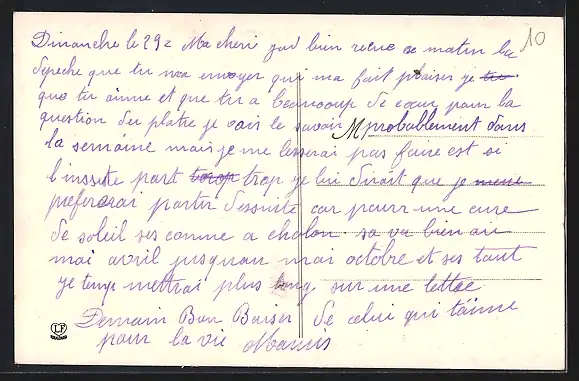 10
Dimanche le 29 = Ma cheri jad bien recue ce matin la
depeche que tu ma envoyer qui ma fait plaisir je
que tu aime et que tu a beaucoup de cœur pour la
question du platre je vais le savoir probablement dans
la semaine mais je me lesserai pas faire est si
l'inssite part trop trop je lui dirait que je
prefererai partir dessuite car pour une cure
de soleil ses comme a chalon sa va bien au
mai avril jusquau mai octobre et ses tout
je temp mettrai plus long sur une lettre
Demain Bon Baiser de celui qui t'aime
pour la vie Marius
LF